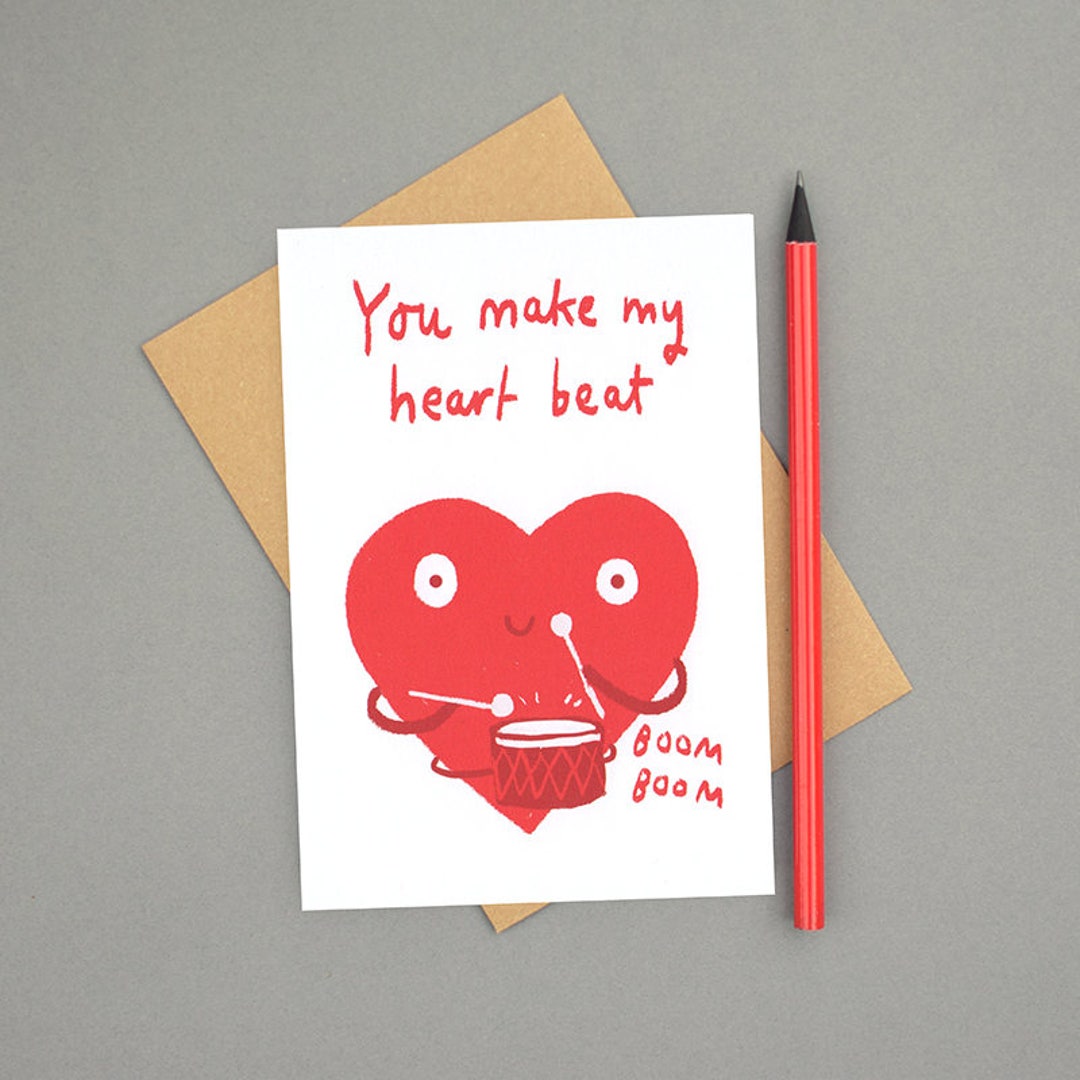 You make my
heart beat
BOOM
BOOM